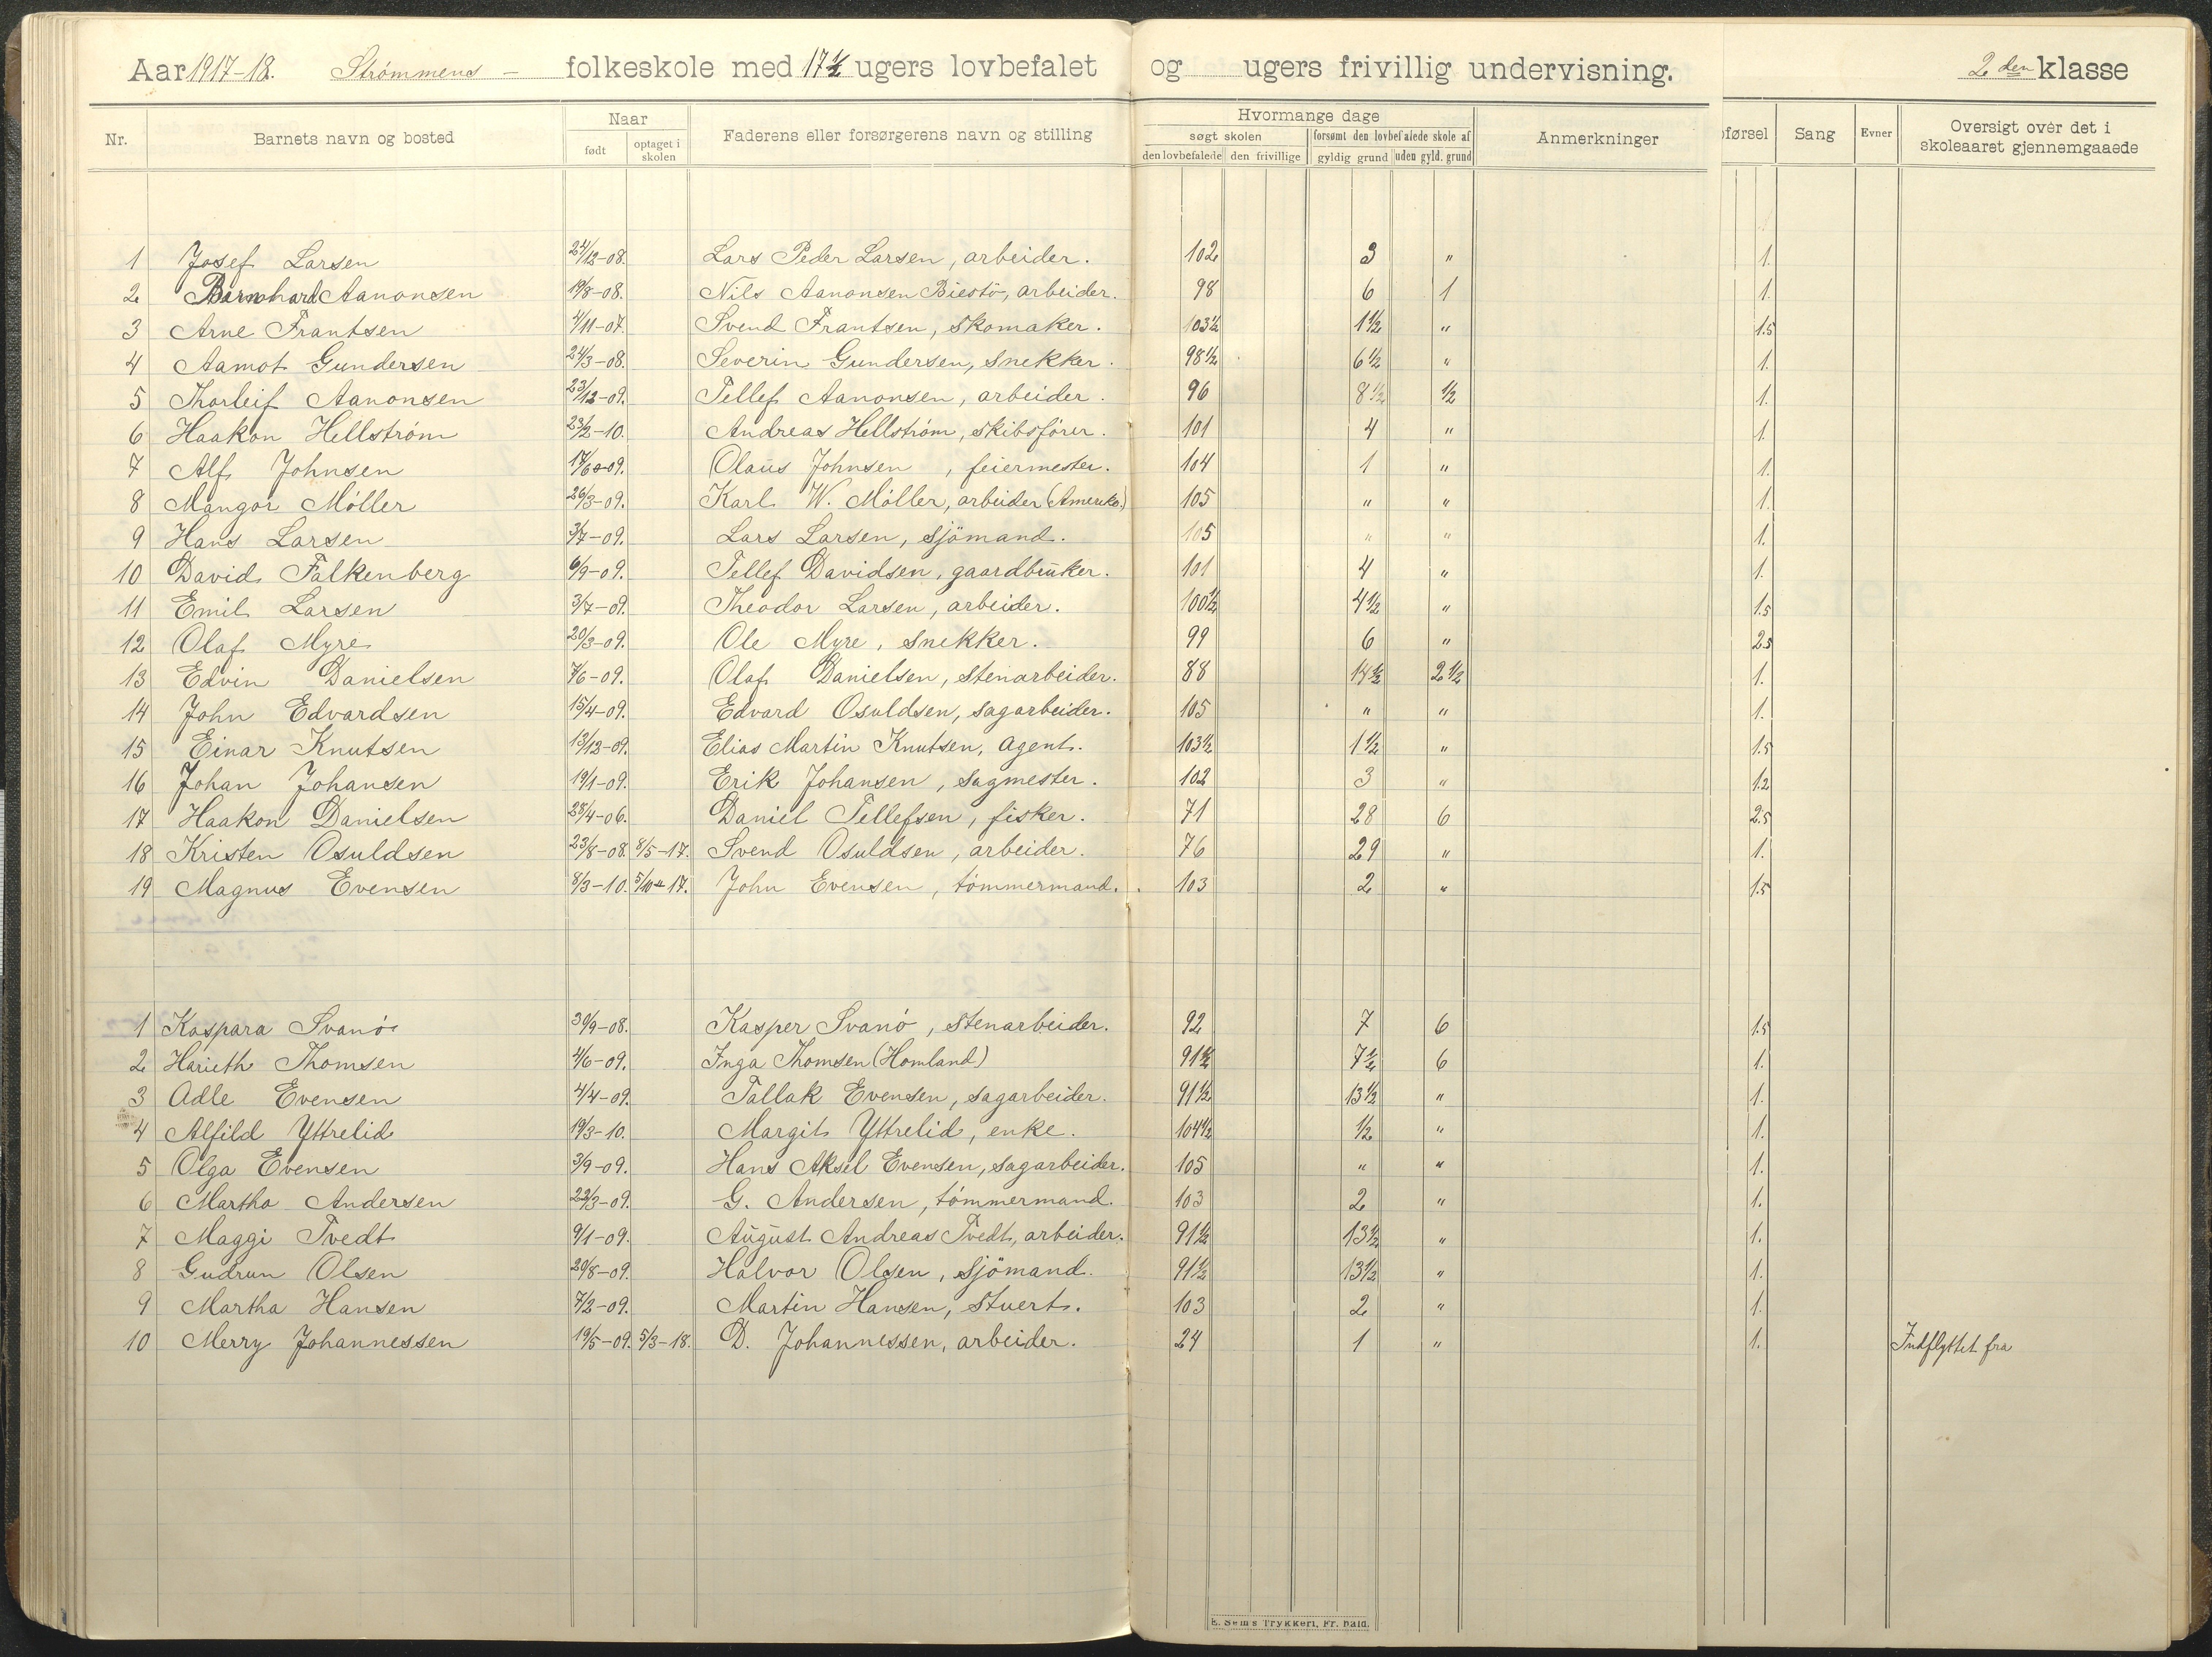 Aar 1917-18. Strømmens – folkeskole med 17 ½ ugers lovbefalet og ugers frivillig undervisning. 2den klasse
Nr. Barnets navn og bosted Naar født optaget i skolen Faderens eller forsørgerens navn og stilling Hvormange dage søgt skolen den lovbefalede den frivillige forsømt den lovbefalede skole af gyldig grund uden gyld. grund Anmerkninger førsel Sang Evner Oversigt over det i skoleaaret gjennemgaaede
1 Josef Larsen 24/12-08. Lars Peder Larsen, arbeider. 102 3 " 1.
2 Barnhard Aanonsen 19/8-08. Nils Aanonsen Biestö, arbeider. 98 6 1 1.
3 Arne Frantsen 4/11-07. Svend Frantsen, skomaker. 103½ 1½ " 1.5
4 Aamot Gundersen 24/3-08. Severin Gundersen, snekker. 98½ 6½ " 1.
5 Thorleif Aanonsen 23/12-09. Tellef Aanonsen, arbeider. 96 8½ ½ 1.
6 Haakon Hellstrøm 23/2-10. Andreas Hellstrøm, skibsfører. 101 4 " 1.
7 Alf Johnsen 17/6-09. Olaus Johnsen, feiermester. 104 1 " 1.
8 Mangor Møller 26/3-09. Karl W. Møller, arbeider (Amerika.) 105 " " 1.
9 Hans Larsen 3/7-09. Lars Larsen, sjömand. 105 " " 1.
10 David Falkenberg 6/9-09. Tellef Davidsen, gaardbruker. 101 4 " 1.
11 Emil Larsen 3/7-09. Theodor Larsen, arbeider. 100½ 4½ " 1.5
12 Olaf Myre 20/3-09. Ole Myre, snekker. 99 6 " 2.5
13 Edvin Danielsen 7/6-09. Olaf Danielsen, stenarbeider. 88 14½ 2½ 1.
14 John Edvardsen 15/4-09. Edvard Osuldsen, sagarbeider. 105 " " 1.
15 Einar Knutsen 13/12-09. Elias Martin Knutsen, agent. 103½ 1½ " 1.5
16 Johan Johansen 19/1-09. Erik Johansen, sagmester. 102 3 " 1.2
17 Haakon Danielsen 28/4-06. Daniel Tellefsen, fisker. 71 28 6 2.5
18 Kristen Osuldsen 23/8-08. 8/5-17. Svend Osuldsen, arbeider. 76 29 " 1.
19 Magnus Evensen 8/3-10. 5/10-17. John Evensen, tømmermand. 103 2 " 1.5
1 Kaspara Svanø 30/9-08. Kasper Svanø, stenarbeider. 92 7 6 1.5
2 Harieth Thomsen 4/6-09. Inga Thomsen (Homland) 91½ 7½ 6 1.
3 Adle Evensen 4/4-09. Tallak Evensen, sagarbeider. 91½ 13½ " 1.
4 Alfild Yttrelid 19/3-10. Margit Yttrelid, enke. 104½ ½ " 1.
5 Olga Evensen 3/9-09. Hans Aksel Evensen, sagarbeider. 105 " " 1.
6 Martha Andersen 22/3-09. G. Andersen, tømmermand. 103 2 " 1.
7 Maggi Tvedt 9/1-09. August Andreas Tvedt, arbeider. 91½ 13½ " 1.
8 Gudrun Olsen 20/8-09. Halvor Olsen, sjömand. 91½ 13½ " 1.
9 Martha Hansen 7/2-09. Martin Hansen, stuert. 103 2 " 1.
10 Merry Johannessen 19/5-09. 5/3-18. D. Johannessen, arbeider. 24 1 " 1. Indflyttet fra
E. Sem's Trykkeri, Fr. hald.